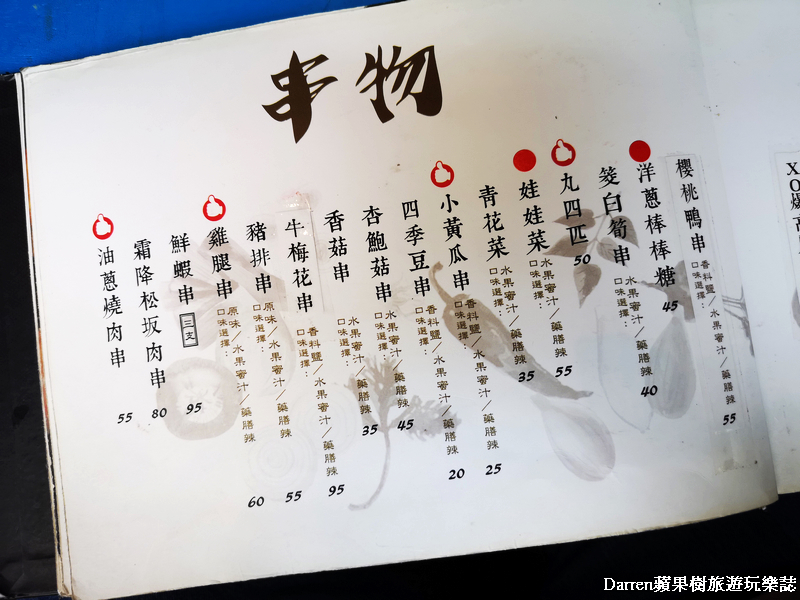 串物
櫻桃鴨串
口味選擇：
香料鹽／水果蜜汁／藥膳辣
55
洋蔥棒棒糖
45
筊白筍串
口味選擇：
水果蜜汁／藥膳辣
40
丸四匹
50
娃娃菜
口味選擇：
水果蜜汁／藥膳辣
55
青花菜
口味選擇：
水果蜜汁／藥膳辣
35
小黃瓜串
口味選擇：
香料鹽／水果蜜汁／藥膳辣
25
四季豆串
口味選擇：
香料鹽／水果蜜汁／藥膳辣
20
杏鮑菇串
口味選擇：
水果蜜汁／藥膳辣
45
香菇串
口味選擇：
水果蜜汁／藥膳辣
35
牛梅花串
口味選擇：
香料鹽／水果蜜汁／藥膳辣
95
豬排串
口味選擇：
原味／水果蜜汁／藥膳辣
55
雞腿串
口味選擇：
原味／水果蜜汁／藥膳辣
60
鮮蝦串 三支
95
霜降松坂肉串
80
油蔥燒肉串
55
XO爆
Darren蘋果樹旅遊玩樂誌